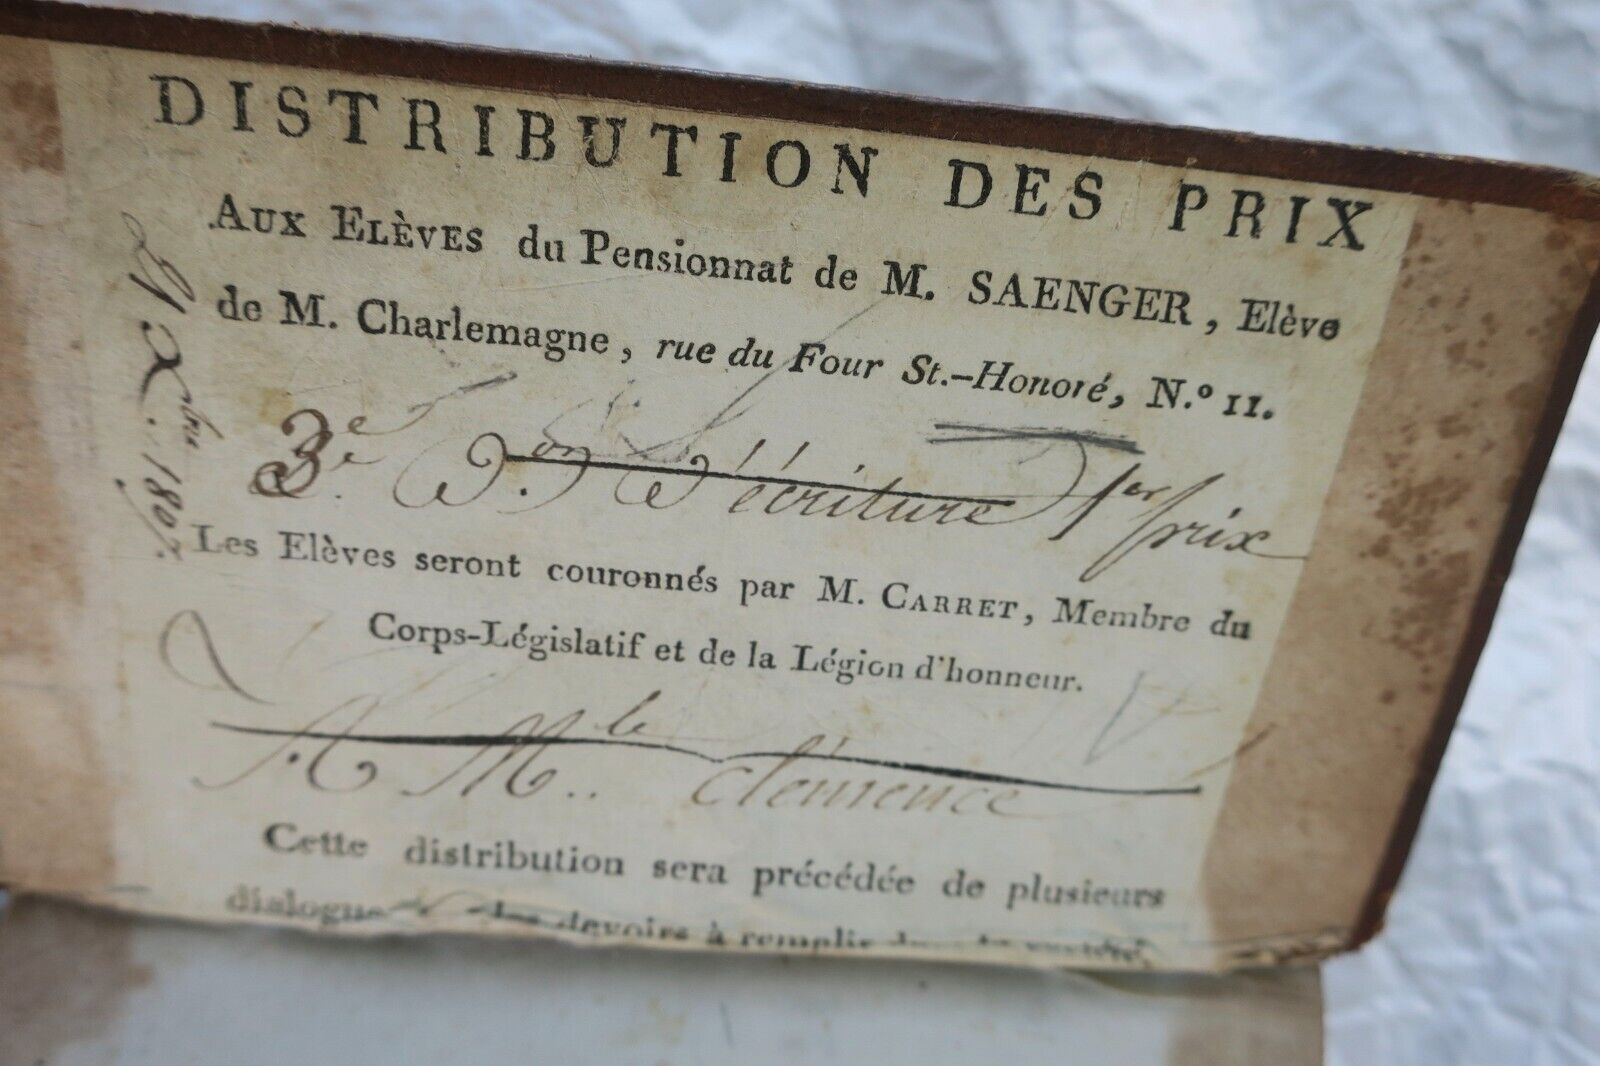 DISTRIBUTION DES PRIX
AUX ELÈVES du Pensionnat de M. SAENGER, Elève
de M. Charlemagne, rue du Four St.-Honoré, N.º 11.
3e. D.on d'écriture 1er prix
Les Elèves seront couronnés par M. CARRET, Membre du
Corps-Législatif et de la Légion d'honneur.
A Mlle.. clémence
Cette distribution sera précédée de plusieurs
dialogues les devoirs à remplir
X.bre 1807.